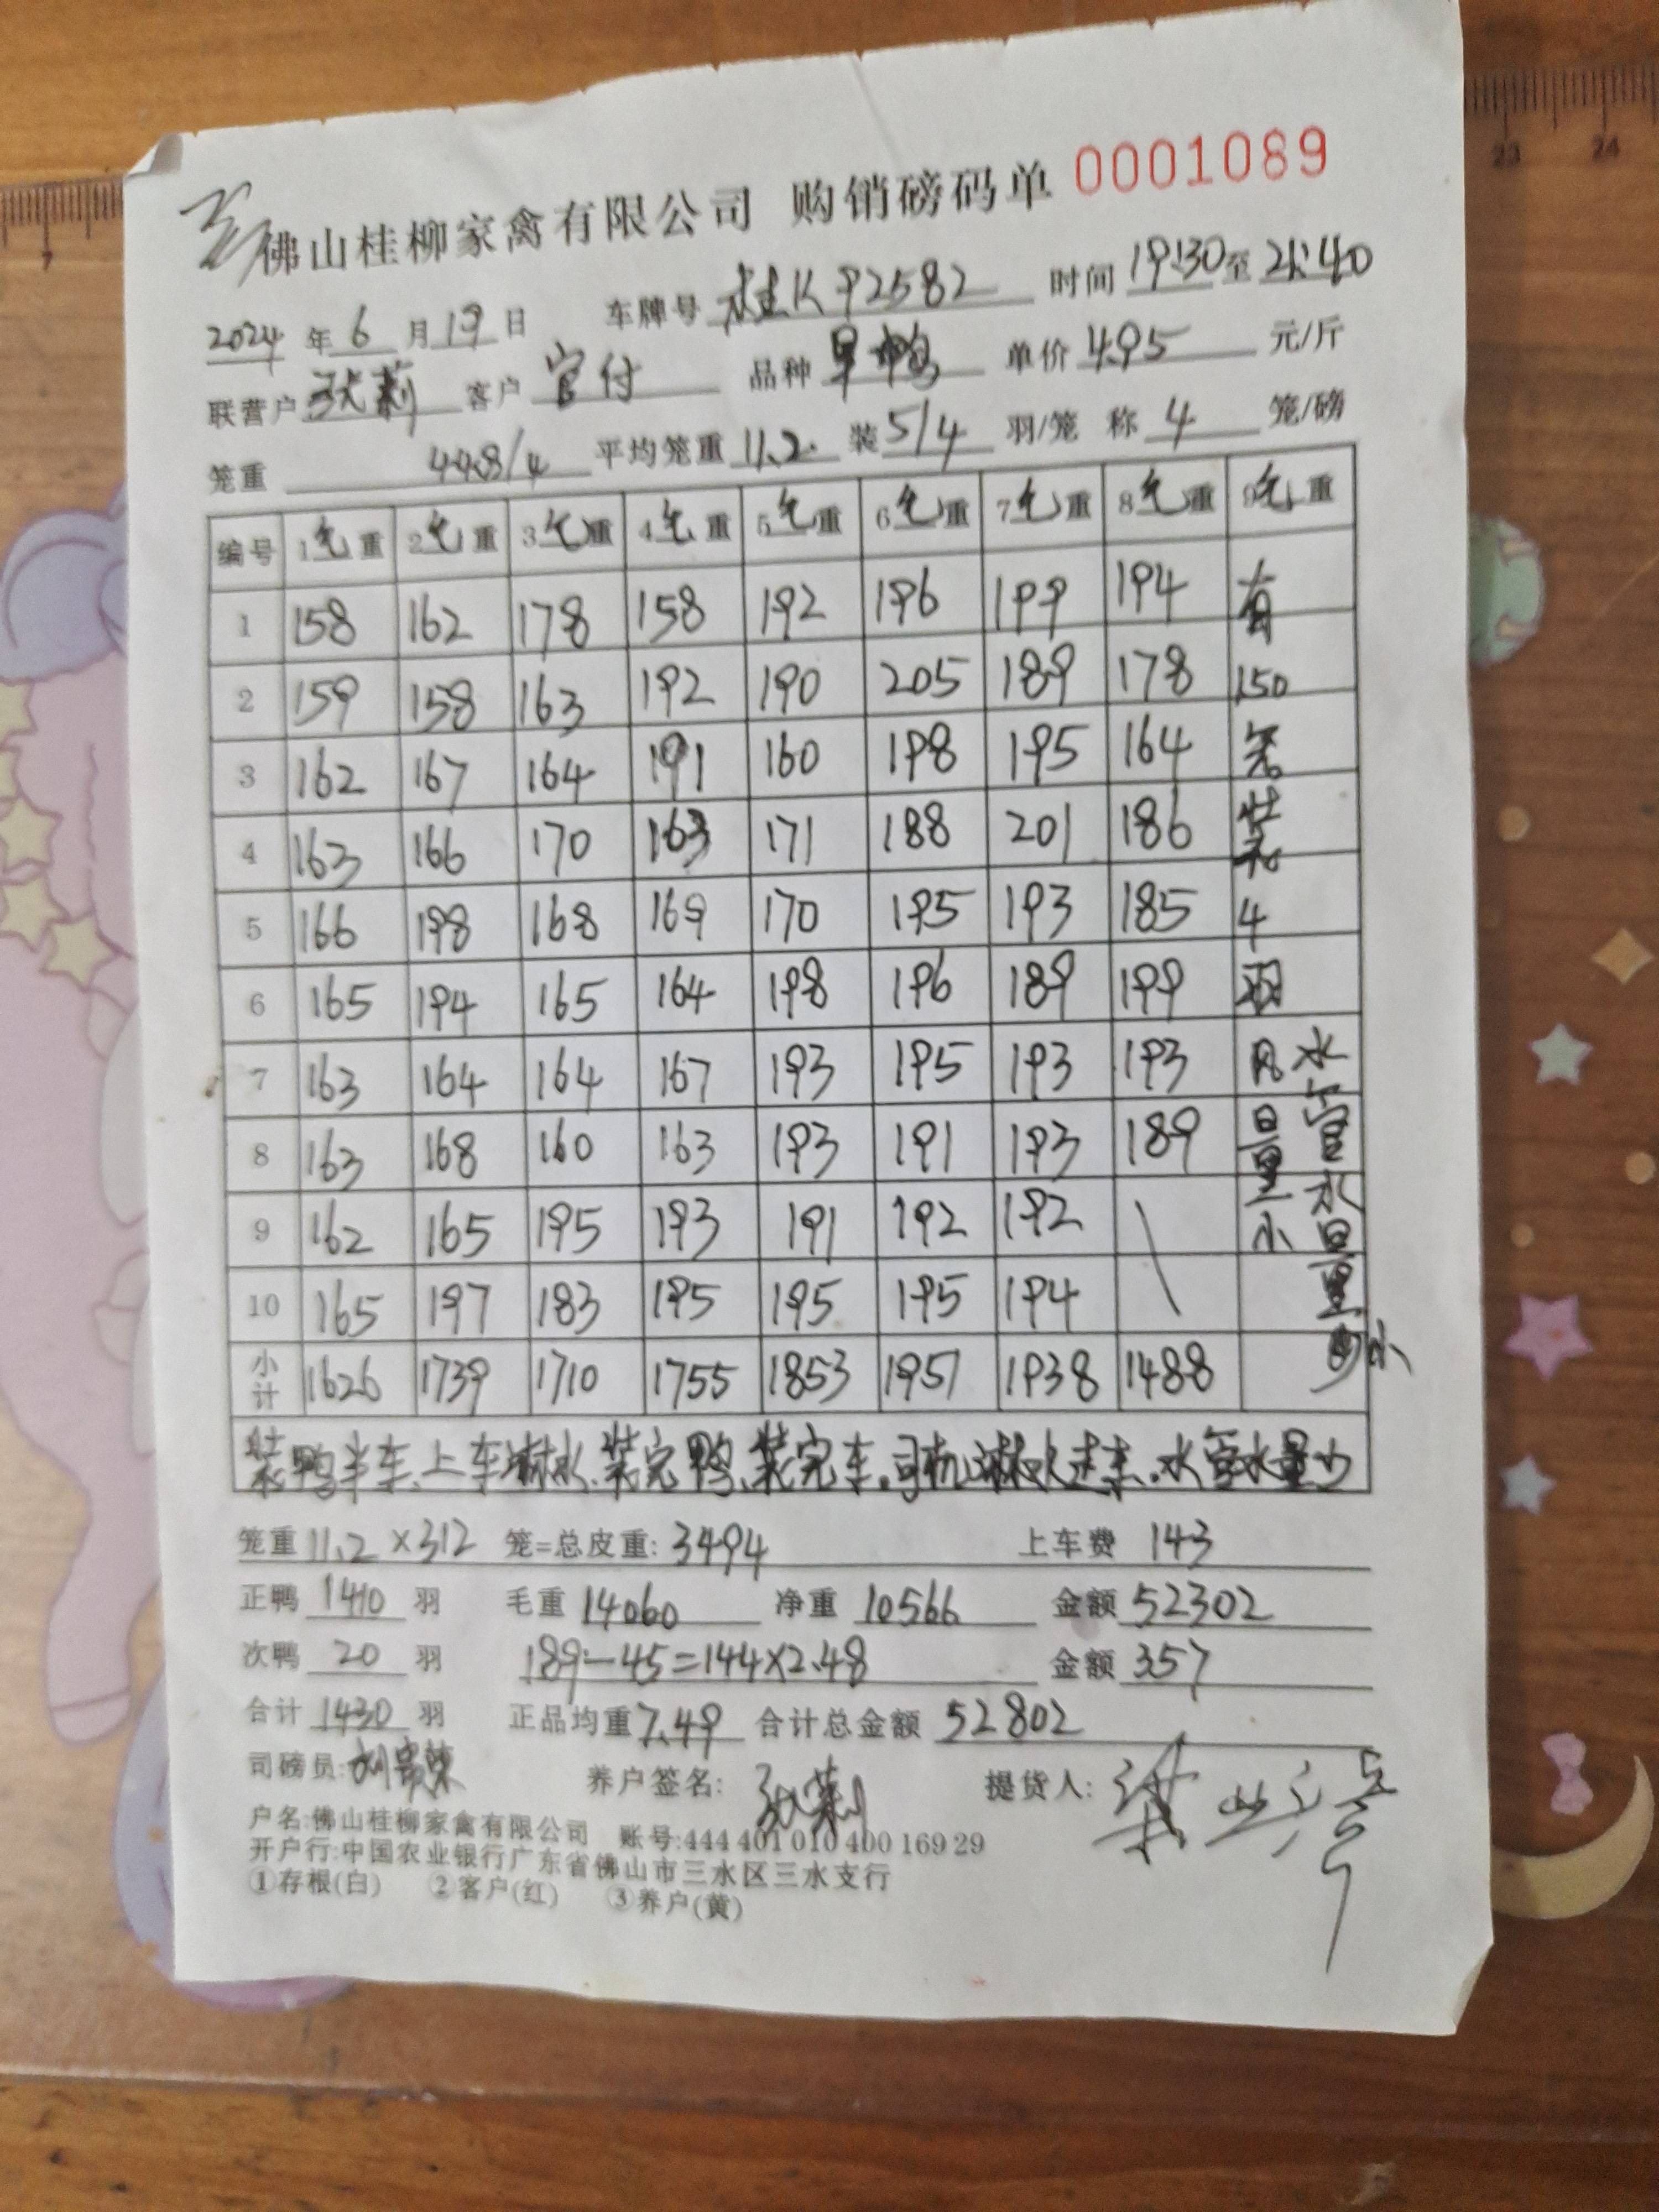 佛山桂柳家禽有限公司 购销磅码单 0001089
2024 年 6 月 19 日 车牌号 桂K92582 时间 19:30 至 21:40
联营户 张莉 客户 官付 品种 旱鸭 单价 4.95 元/斤
笼重 44.8/4 平均笼重 11.2 装 5/4 羽/笼 称 4 笼/磅
编号 1毛重 2毛重 3毛重 4毛重 5毛重 6毛重 7毛重 8毛重 9毛重
1 158 162 178 158 192 196 199 194 有
2 159 158 163 192 190 205 189 178 150
3 162 167 164 191 160 198 195 164 笼
4 163 166 170 163 171 188 201 186 装
5 166 198 168 169 170 195 193 185 4
6 165 194 165 164 198 196 189 199 羽
7 163 164 164 167 193 195 193 193 风 水
8 163 168 160 163 193 191 193 189 量 管
9 162 165 195 193 191 192 192 \ 小 水
10 165 197 183 195 195 195 194 量
小计 1626 1739 1710 1755 1853 1951 1938 1488 小
装鸭半车、上车淋水、装完鸭、装完车。司机淋水过车、水管水量少
笼重 11.2 ×312 笼=总皮重: 3494 上车费 143
正鸭 1410 羽 毛重 14060 净重 10566 金额 52302
次鸭 20 羽 189-45=144×2.48 金额 357
合计 1430 羽 正品均重 7.49 合计总金额 52802
司磅员: 养户签名: 张莉 提货人:
户名:佛山桂柳家禽有限公司 账号:444 401 010 400 169 29
开户行:中国农业银行广东省佛山市三水区三水支行
①存根(白) ②客户(红) ③养户(黄)
7
23 24